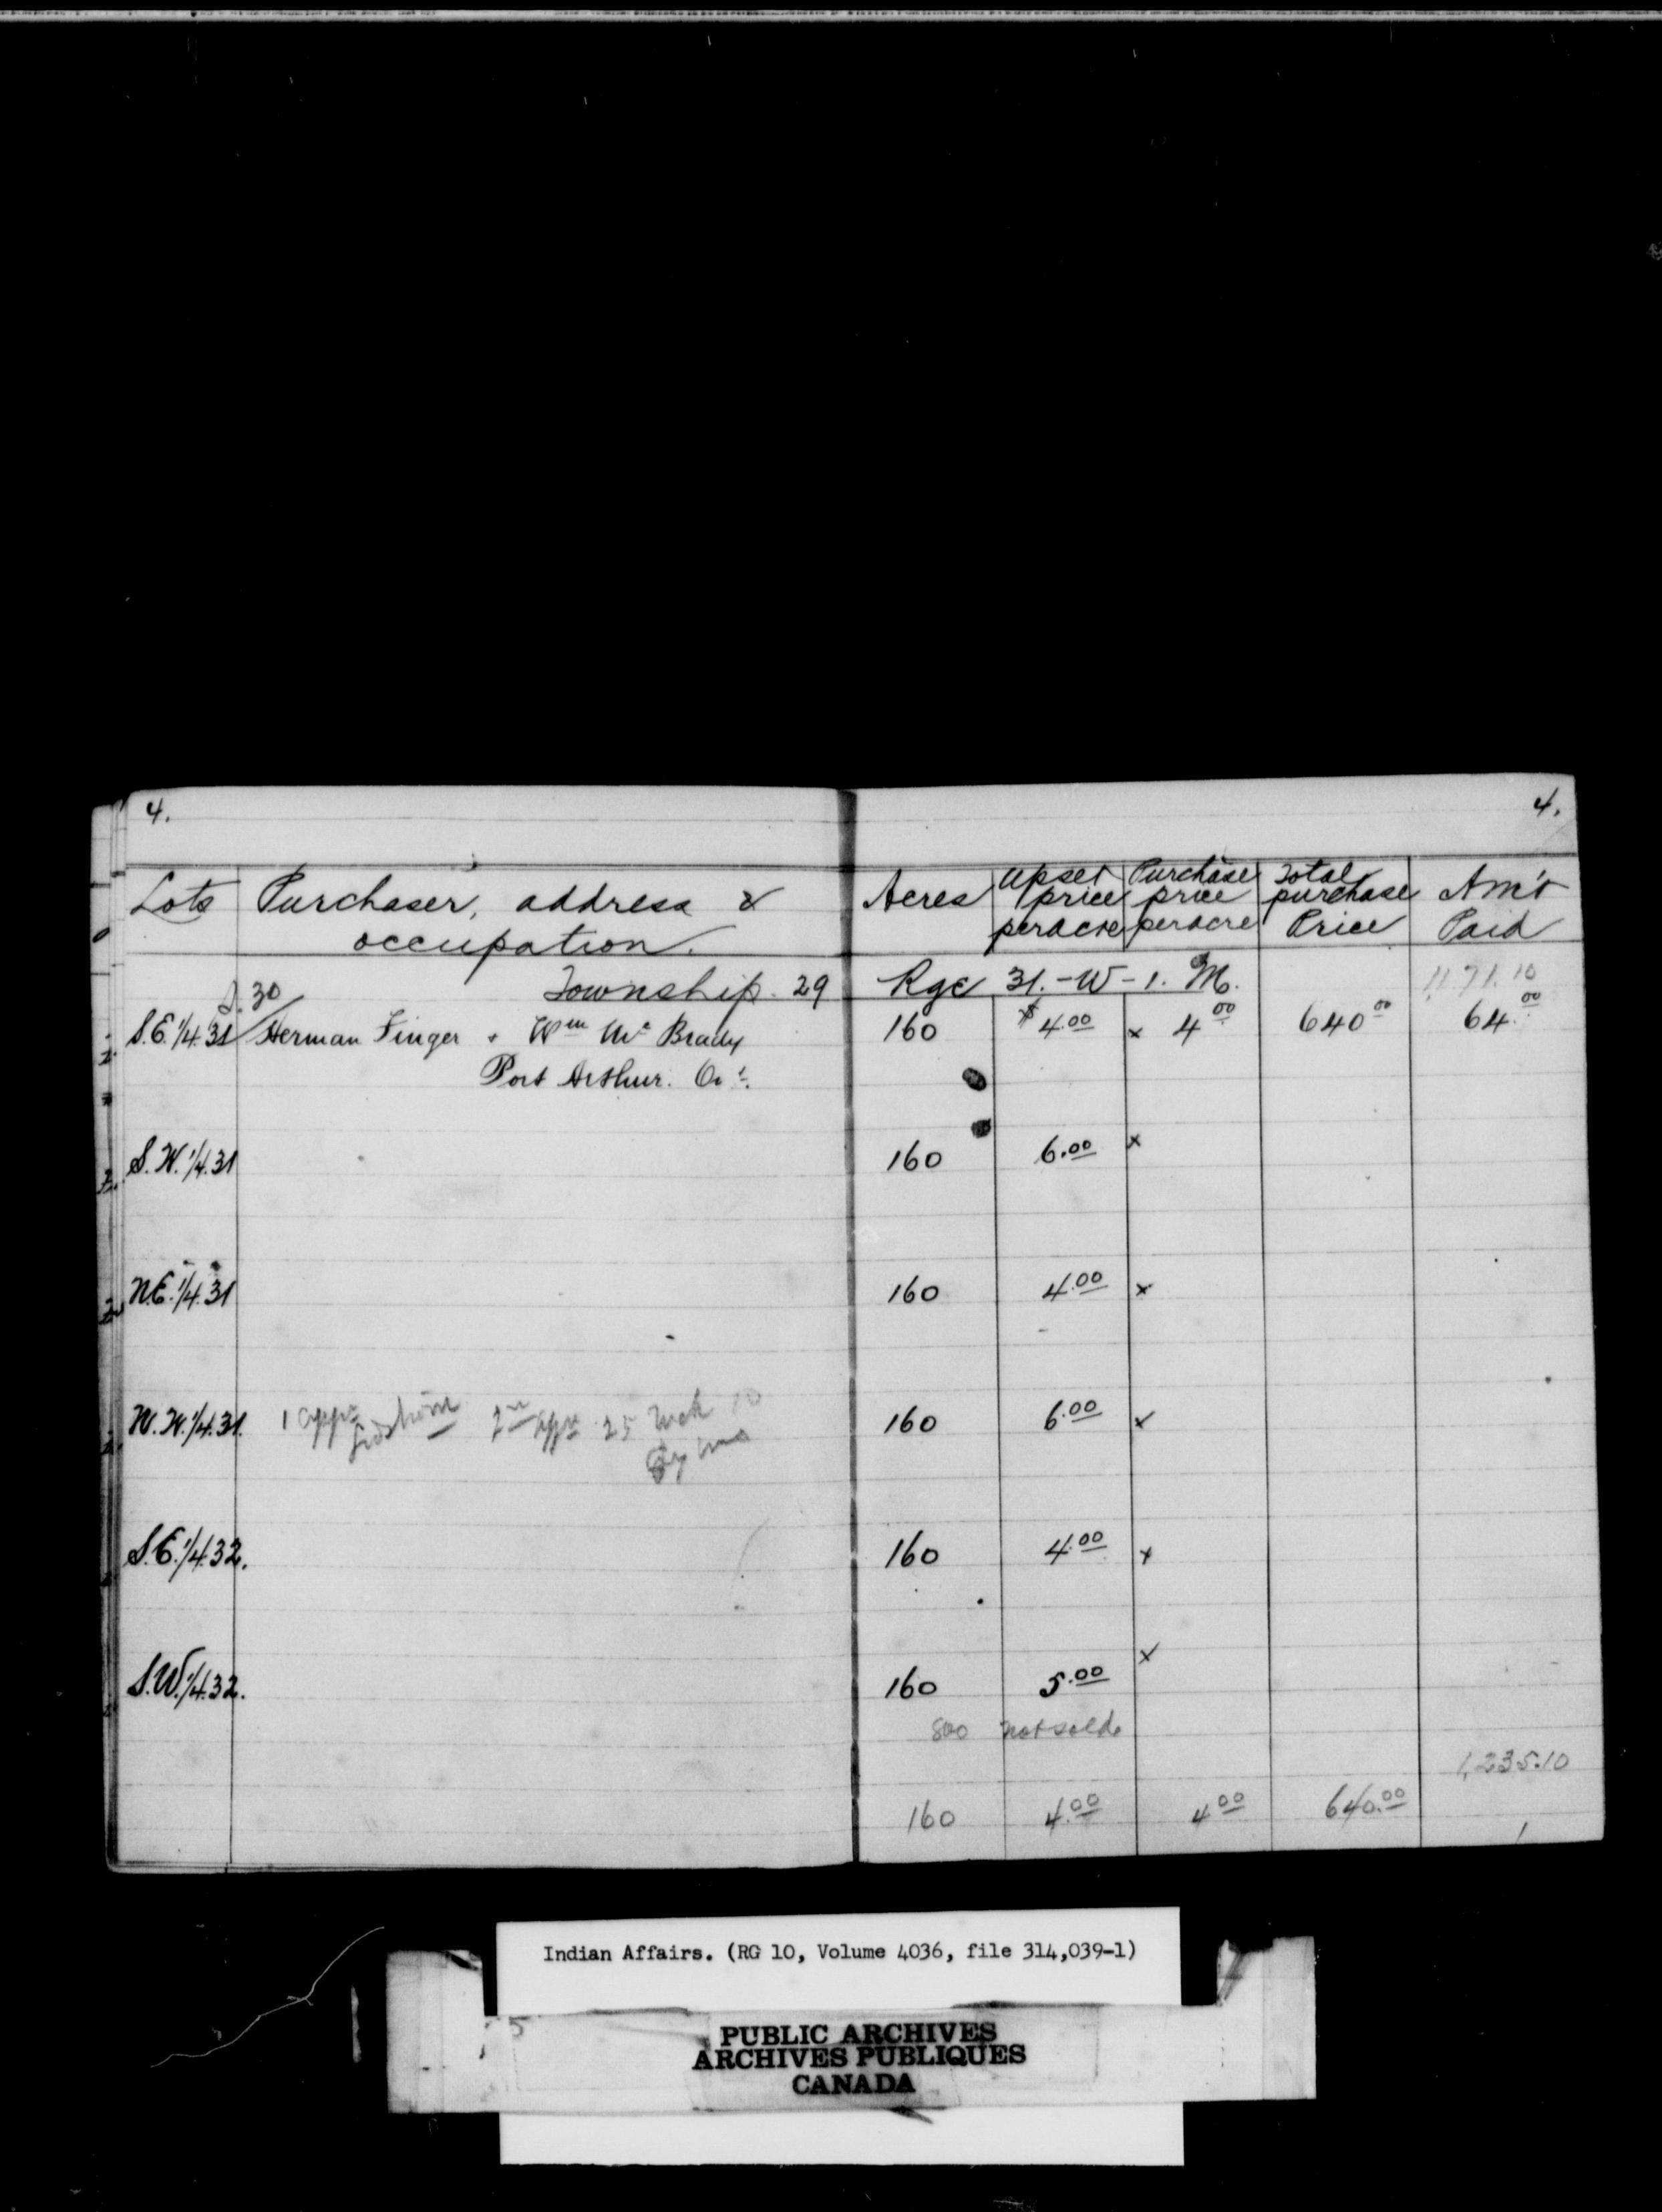 4. 4.
Lots Purchaser, address & occupation. Acres Upset price per acre Purchase price per acre Total purchase Price Am't Paid
Township. 29 Rge 31.-W-1. M. 1171.10
S.30
S.E.1/4.31 Herman Finger & Wm Mc Brady 160 $4.00 x 4 00 640 00 64.00
Port Arthur. Ot.
S.W.1/4.31 160 6.00 x
N.E.1/4.31 160 4.00 x
N.W.1/4.31. 1 appn 2nd appn 25 160 6.00 x
S.E.1/4.32. 160 4.00 x
S.W.1/4.32. 160 5.00 x
800 not sold
1,235.10
160 4.00 4 00 640.00
Indian Affairs. (RG 10, Volume 4036, file 314,039-1)
5
PUBLIC ARCHIVES
ARCHIVES PUBLIQUES
CANADA